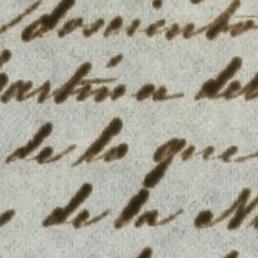 doscientos
artinez del
de lo que
de la